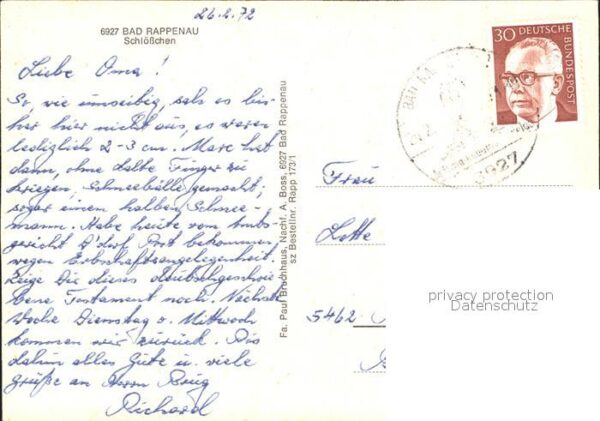 26.2.72
6927 BAD RAPPENAU
Schlößchen
Liebe Oma!
So, wie umseitig, sah es bis
her hier nicht aus, es waren
lediglich 2-3 cm. Marc hat
dann, ohne kalte Finger zu
kriegen, Schneebälle gemacht,
sogar einen halben Schnee-
mann. Habe heute vom Amts
gericht D'dorf Post bekommen,
wegen Erbschaftsangelegenheit.
Zeige Dir dieses
bene Testament noch. Nächste
Woche Dienstag o. Mittwoch
kommen wir zurück. Bis
dahin alles Gute u. viele
Grüße an Herrn
Richard
Fa. Paul Bruchhaus, Nachf. A. Boss, 6927 Bad Rappenau
sz Bestellnr. Rapp 173/1
30 DEUTSCHE
BUNDESPOST
BAD
6927
Frau
Lotte
5462
privacy protection
Datenschutz